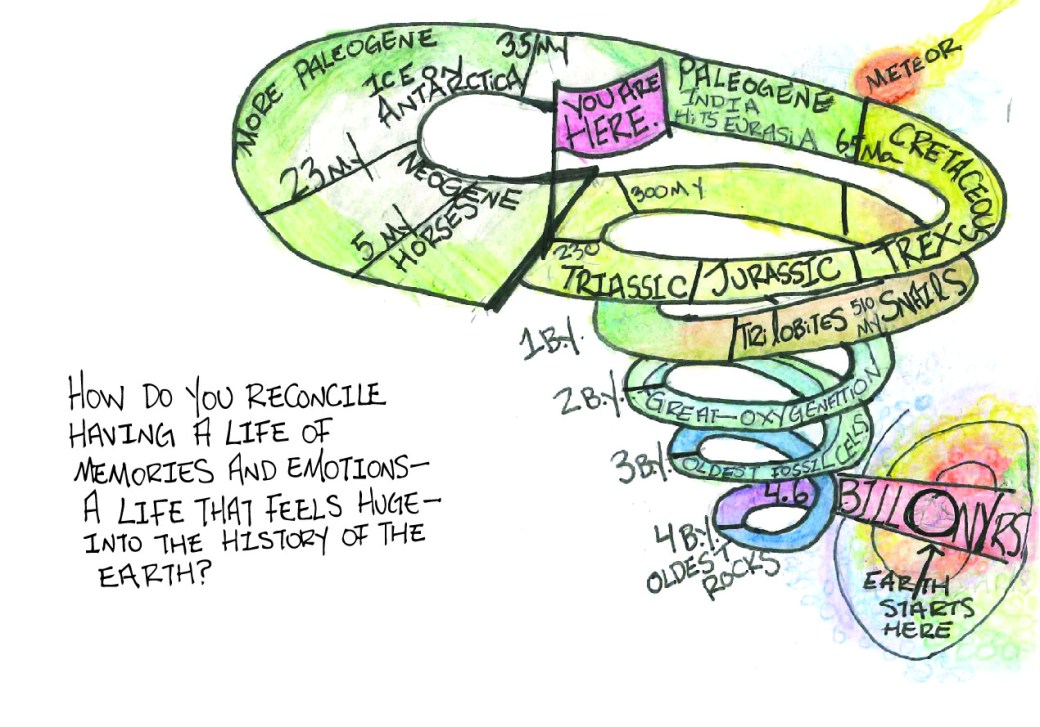 MORE PALEOGENE
35 MY
ICE ON
ANTARCTICA
YOU ARE
HERE.
PALEOGENE
INDIA
HITS EURASIA
METEOR
65 Ma
CRETACEOUS
23 MY
NEOGENE
5 MY
HORSES
300 MY
230
TRIASSIC
JURASSIC
TREX
1 B.Y.
TRILOBITES
510
MY
SNAILS
2 B.Y.
GREAT-OXYGENATION
3 B.Y.
OLDEST FOSSIL CELLS
4.6
BILLONYRS
4 B.Y.
OLDEST
ROCKS
EARTH
STARTS
HERE
HOW DO YOU RECONCILE
HAVING A LIFE OF
MEMORIES AND EMOTIONS—
A LIFE THAT FEELS HUGE—
INTO THE HISTORY OF THE
EARTH?